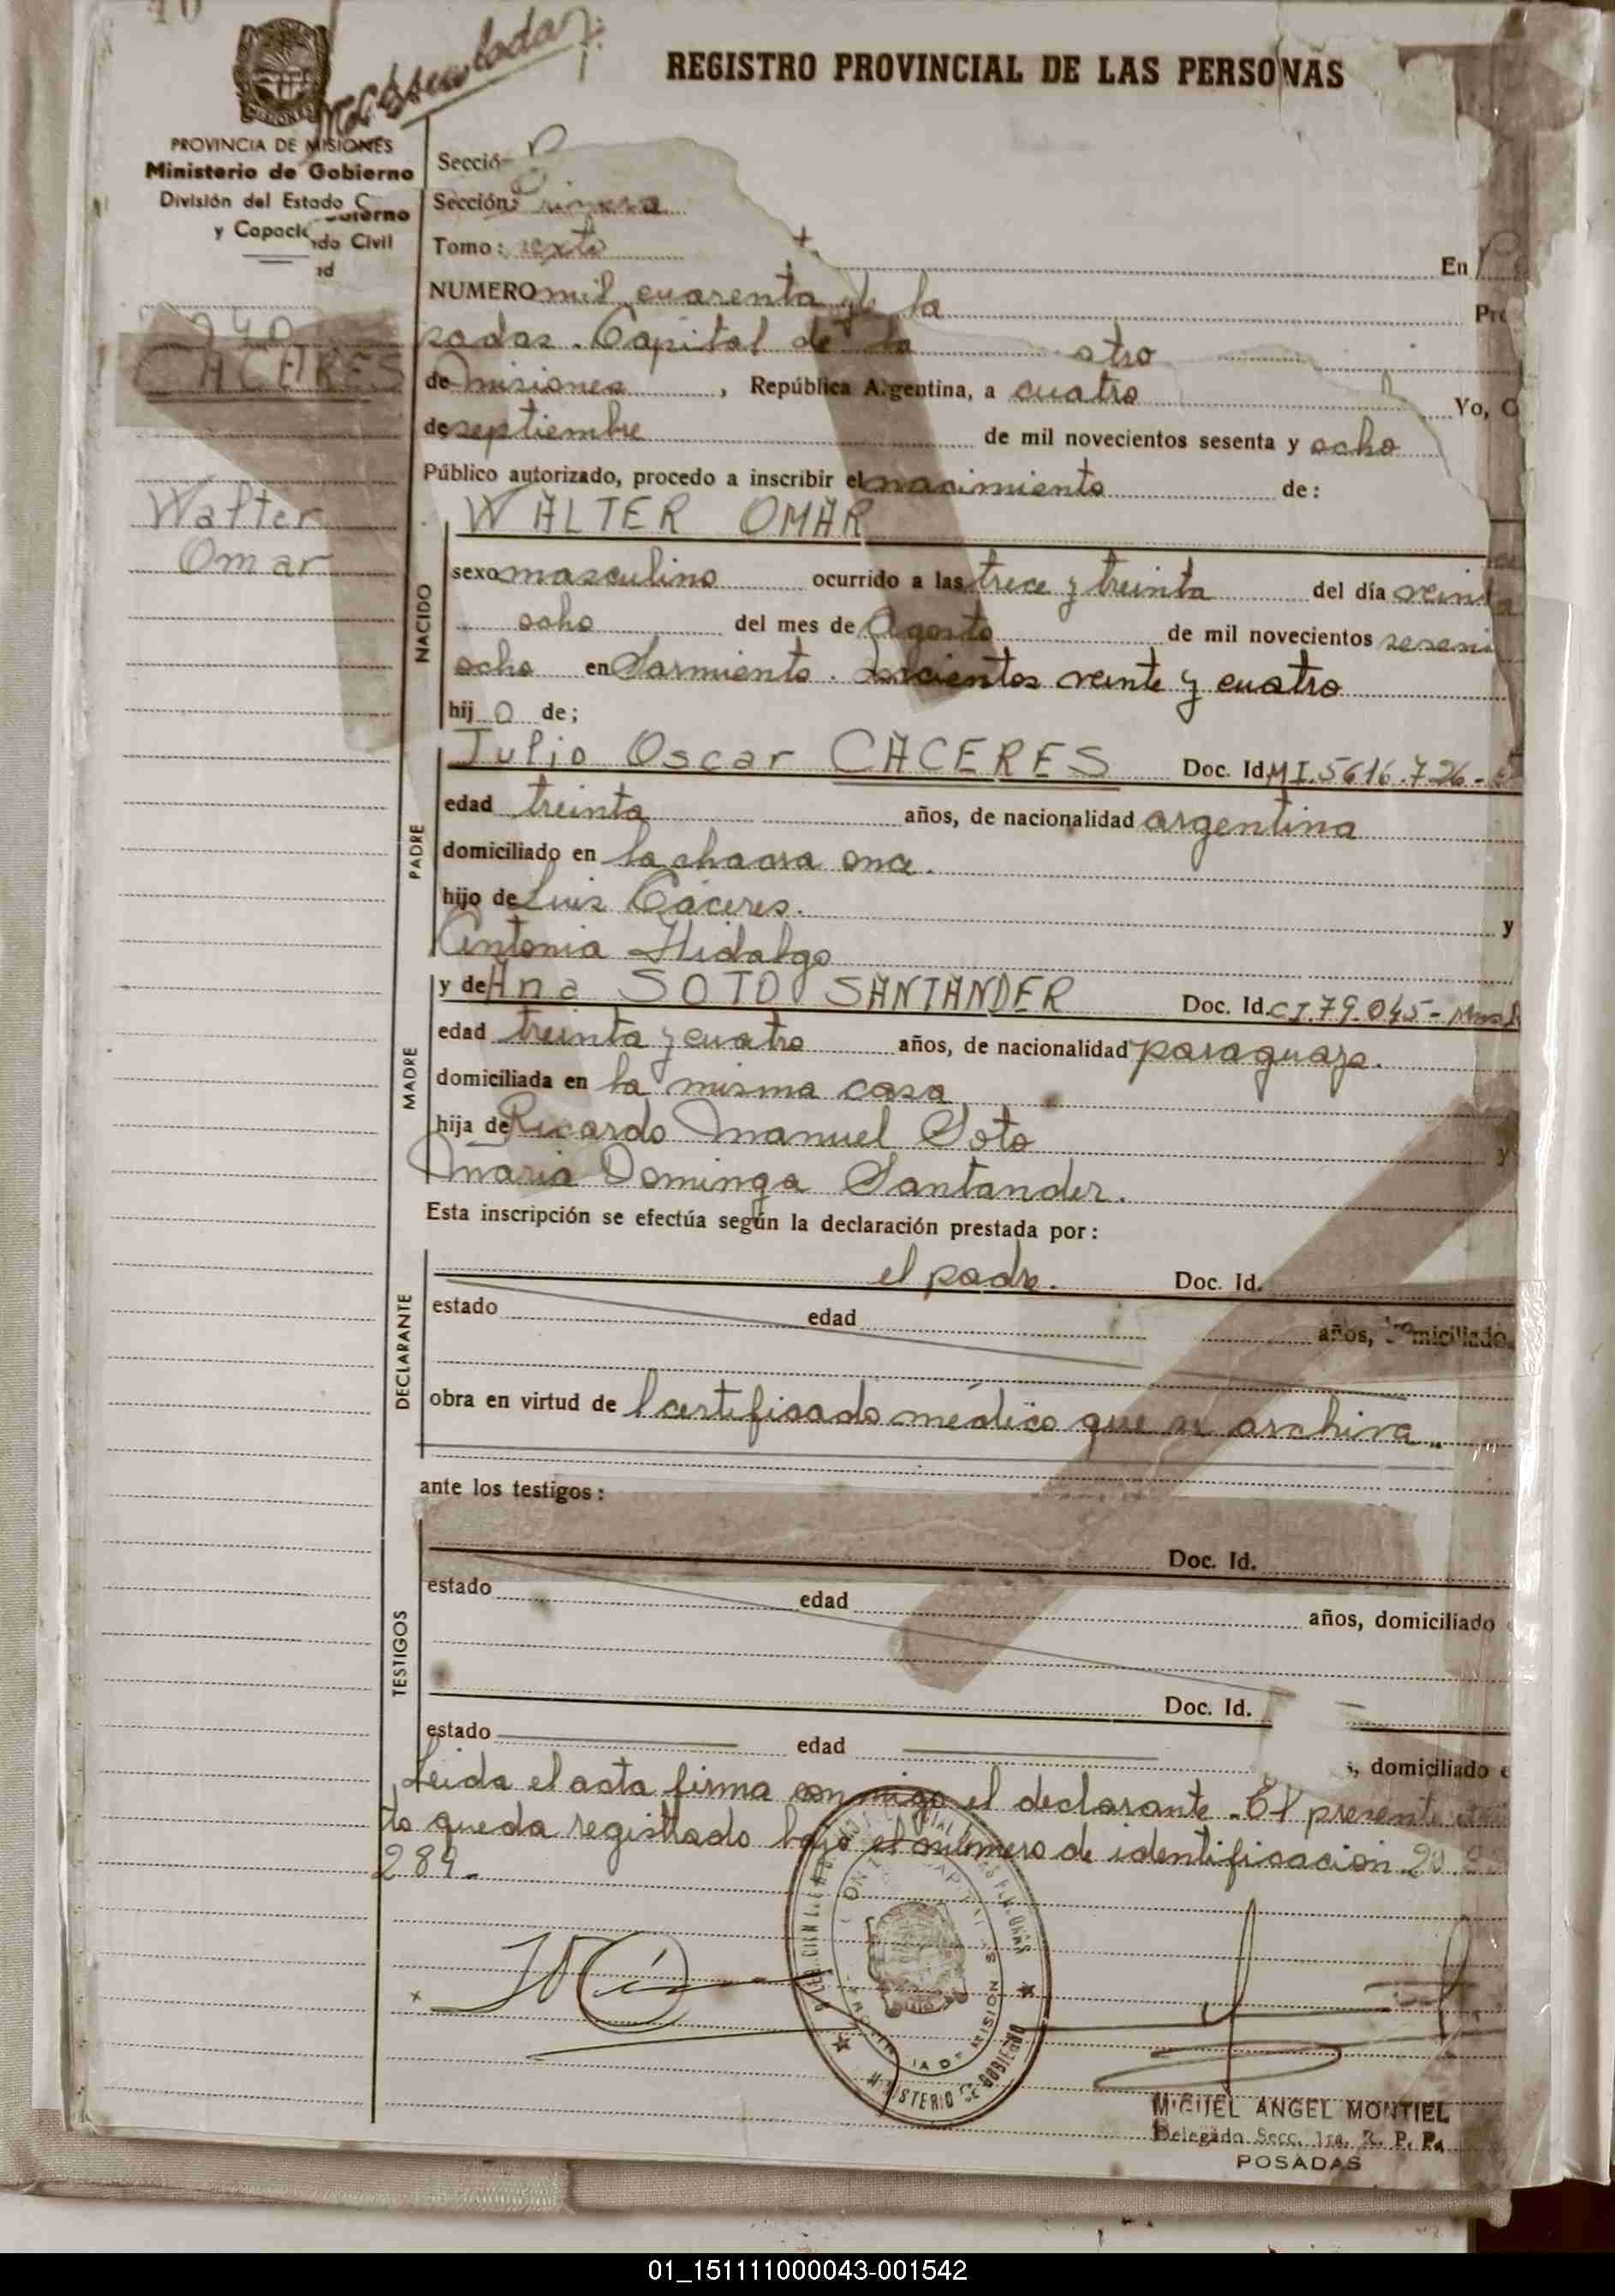 REGISTRO PROVINCIAL DE LAS PERSONAS
PROVINCIA DE MISIONES
Ministerio de Gobierno
División del Estado C
y Capaci
ierno
do Civil
Secció
Sección: Primera
Tomo: sexto
En
NUMERO mil cuarenta
la
sadas. Capital de la
de misiones, República Argentina, a cuatro
Yo,
de septiembre de mil novecientos sesenta y ocho
Público autorizado, procedo a inscribir el nacimiento de:
CACERES
Walter
Omar
NACIDO
WALTER OMAR
sexo masculino ocurrido a las trece y treinta del día veinti
ocho del mes de Agosto de mil novecientos sesen
ocho en Sarmiento. doscientos veinte y cuatro
hij o de;
PADRE
Julio Oscar CACERES Doc. Id. M I. 5616.726-
edad treinta años, de nacionalidad argentina
domiciliado en la chacra once.
hijo de Luis Cáceres. y
Antonia Hidalgo
MADRE
y de Ana SOTO SANTANDER Doc. Id. C I. 79.045-
edad treinta y cuatro años, de nacionalidad paraguaya.
domiciliada en la misma casa
hija de Ricardo Manuel Soto y
Maria Dominga Santander.
Esta inscripción se efectúa según la declaración prestada por:
DECLARANTE
el padre. Doc. Id.
estado edad años, domiciliado
obra en virtud de l certificado médico que se archiva..
ante los testigos:
TESTIGOS
Doc. Id.
estado edad años, domiciliado
Doc. Id.
estado edad , domiciliado e
Leida el acta firma conmigo el declarante. El presente
to queda registrado bajo el número de identificación 20
289.
MINISTERIO DE GOBIERNO
MIGUEL ANGEL MONTIEL
Delegado Secc. 1ra. R. P. P.
POSADAS
01_151111000043-001542